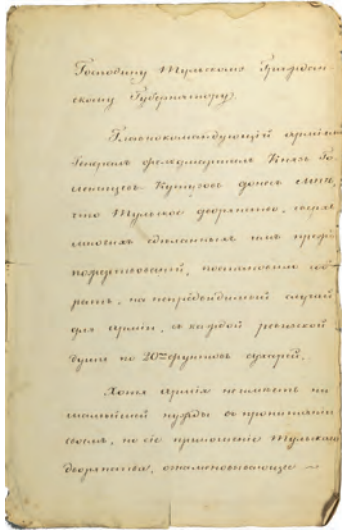 Господину Тульскому Граждан-
скому Губернатору.
Главнокомандующій арміями
Генералъ фельдмаршалъ Князь Го-
ленищевъ-Кутузовъ донесъ Мнѣ,
что Тульское дворянство, сверхъ
многихъ сдѣланныхъ имъ прежде
пожертвованій, постановило соб-
рать, на непредвидимый случай
для арміи, съ каждой ревижской
души по 20ть фунтовъ сухарей.
Хотя армія не имѣетъ ни
малѣйшей нужды въ пропитаніи
своемъ, но сіе приношеніе Тульскаго
дворянства, ознаменовывающее